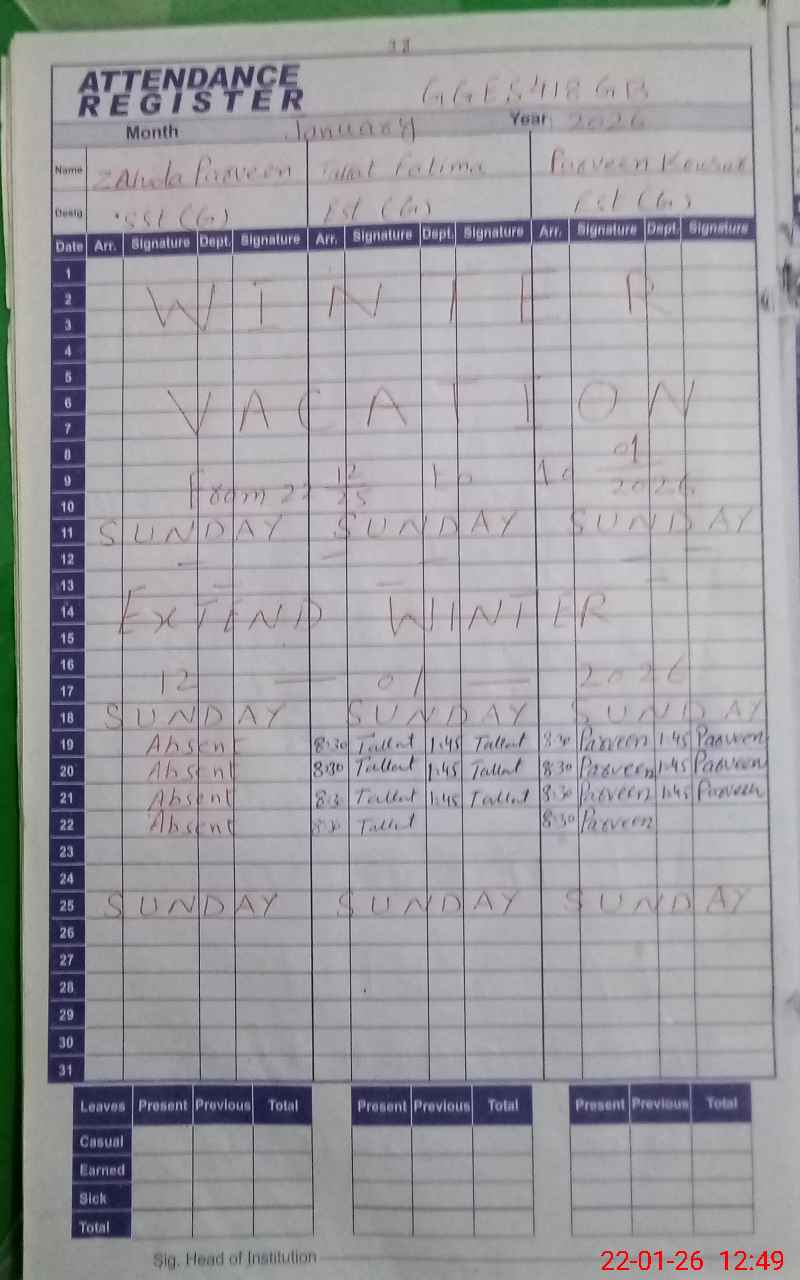 ATTENDANCE
REGISTER
GGES 418 GB
Month January Year 2026
Name Zahida Parveen Tallat Fatima Parveen Kousar
Desig SST (G) EST (G) EST (G)
Date Arr. Signature Dept. Signature Arr. Signature Dept. Signature Arr. Signature Dept. Signature
1
2 WINTER
3
4
5
6 VACATION
7
8
9 From 22 12/25 to 10 01/2026
10
11 SUNDAY SUNDAY SUNDAY
12
13
14 EXTEND WINTER
15
16
17 12 — 01 — 2026
18 SUNDAY SUNDAY SUNDAY
19 Absent 8:30 Tallat 1:45 Tallat 8:30 Parveen 1:45 Parveen
20 Absent 8:30 Tallat 1:45 Tallat 8:30 Parveen 1:45 Parveen
21 Absent 8:3 Tallat 1:45 Tallat 8:30 Parveen 1:45 Parveen
22 Absent 8:30 Tallat 8:30 Parveen
23
24
25 SUNDAY SUNDAY SUNDAY
26
27
28
29
30
31
Leaves Present Previous Total Present Previous Total Present Previous Total
Casual
Earned
Sick
Total
Sig. Head of Institution
22-01-26 12:49